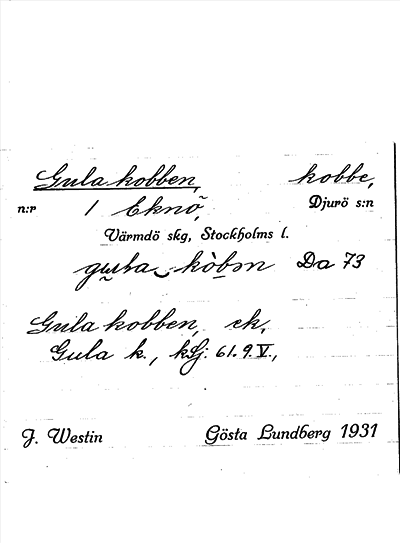 Gula kobben, kobbe,
n:r 1 Eknö, Djurö s:n
Värmdö skg, Stockholms l.
gu̬la kòbm Da 73
Gula kobben, ek,
Gula k., kSj: 61.9.V.,
J. Westin Gösta Lundberg 1931